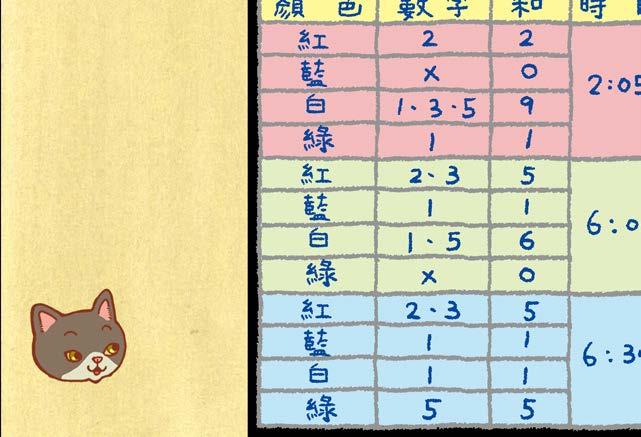 顏 色 數 字 和 時
紅 2 2
藍 x 0 2:05
白 1·3·5 9
綠 1 1
紅 2·3 5
藍 1 1
白 1·5 6 6:0
綠 x 0
紅 2·3 5
藍 1 1
白 1 1 6:30
綠 5 5